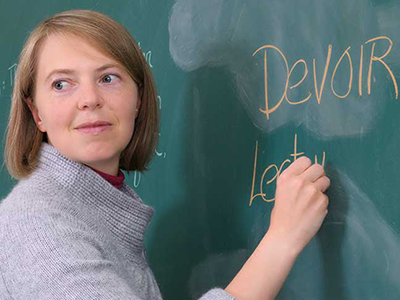 Devoir
Lectu